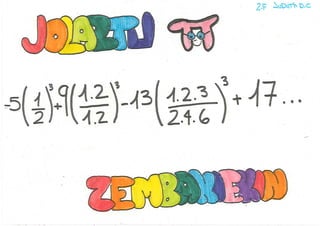 2.F Judith D.C
JOLARTU π
-5(1/2)³+9(1.2/1.2)³-13(1.2.3/2.4.6)³+17...
ZEMBAKIEKIN